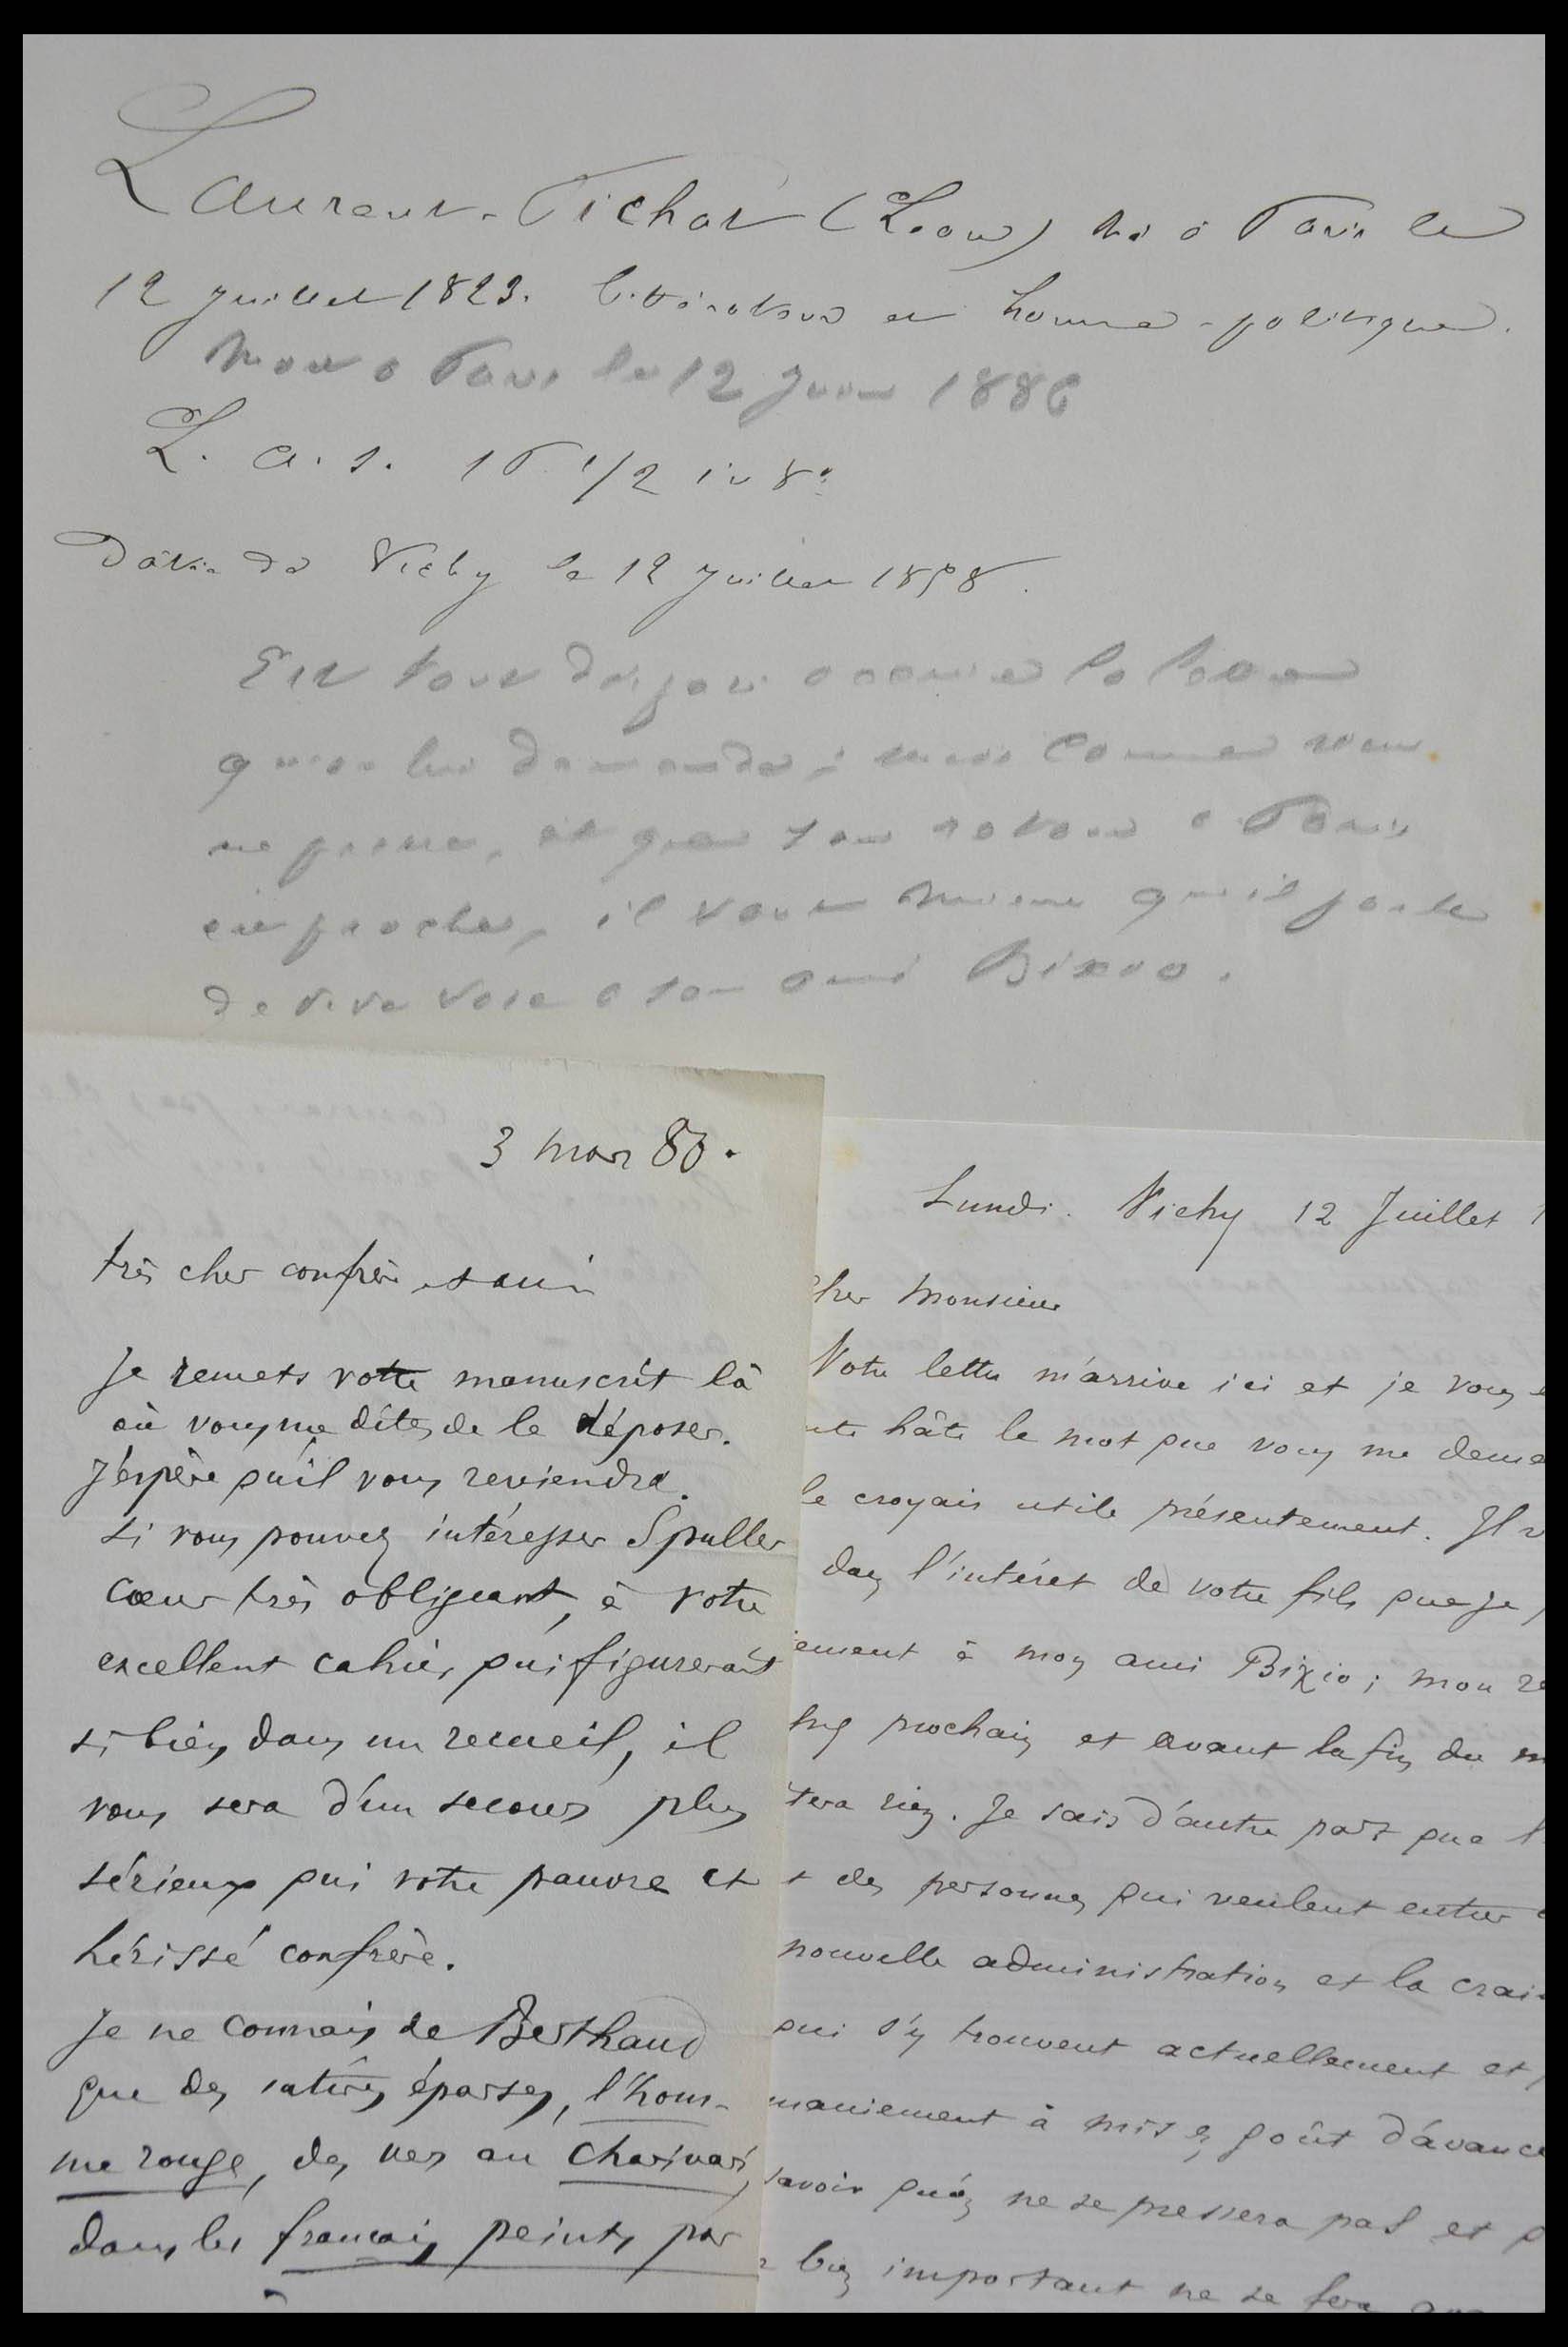 Laurent-Pichat (Léon) né à Paris le
12 juillet 1823. littérateur et homme-politique.
Mort à Paris le 12 Juin 1886
L. a. s. 1 P 1/2 in 8°
Datée de Vichy le 12 Juillet 1858.
Est tout disposé à écrire la lettre
qu'on lui demande; mais comme rien
ne presse, et que son retour à Paris
est proche, il vaut mieux qu'il parle
de vive voix à son ami Bixio.
3 mars 80.
très cher confrère et ami
Je remets votre manuscrit là
où vous me dites de le déposer.
J'espère qu'il vous reviendra.
Si vous pouvez intéresser Spuller
cœur très obligeant, à votre
excellent cahier, qui figurerait
si bien dans un recueil, il
vous sera d'un secours plus
sérieux qui votre pauvre et
hérissé confrère.
Je ne connais de Berthaud
que des satires éparses, l'hom-
me rouge, des vers au Charivari,
dans les français peints par
Lundi. Vichy 12 Juillet 1
cher Monsieur
Votre lettre m'arrive ici et je vous
hâte le mot que vous me dema
le croyais utile présentement. Il v
dans l'intérêt de votre fils que je
ement à mon ami Bixio; mon re
très prochain et avant la fin du m
tera rien. Je sais d'autre part que l
t des personnes qui veulent entrer
nouvelle administration et la crai
qui s'y trouvent actuellement et
maniement à mis en goût d'avance
savoir qu'on ne se pressera pas et
bien important ne se fera